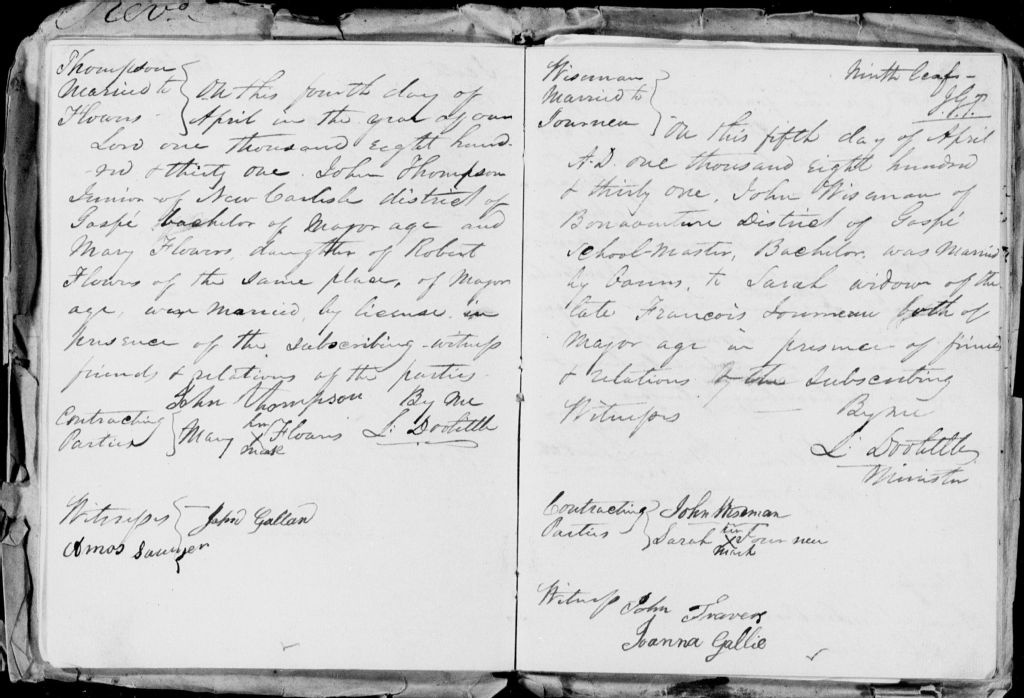 Thompson
Married to
Flowers
On this fourth day of
April in the year of our
Lord one thousand eight hund-
red & thirty one. John Thompson
Junior of New Carlisle district of
Gaspé bachelor of Major age and
Mary Flowers, daughter of Robert
Flowers of the same place, of Major
age, were married, by license, in
presence of the subscribing witness
friends & relations of the parties
John Thompson By me
Contracting
Parties
Mary her x mark Flowers L: Doolittle
Witnesses
Gallan
Amos Sawyer
Ninth leaf
Wiseman
Married to
Journeu
On this fifth day of April
A.D. one thousand eight hundred
& thirty one, John Wiseman of
Bonaventure District of Gaspé
School-Master, Bachelor, was Married
by banns, to Sarah widow of the
late Francois Journeau both of
Major age in presence of friends
& relations & the subscribing
Witnesses By me
L: Doolittle
Minister
Contracting
Parties
John Wiseman
Sarah her x mark Journeu
Witness John Travers
Joanna Gallie